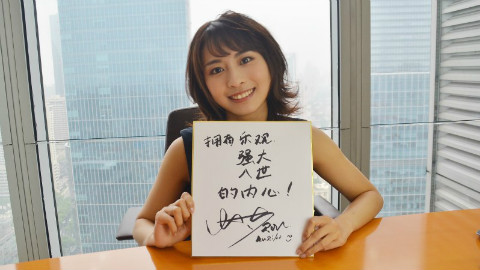 拥有乐观
强大
入世
的内心!